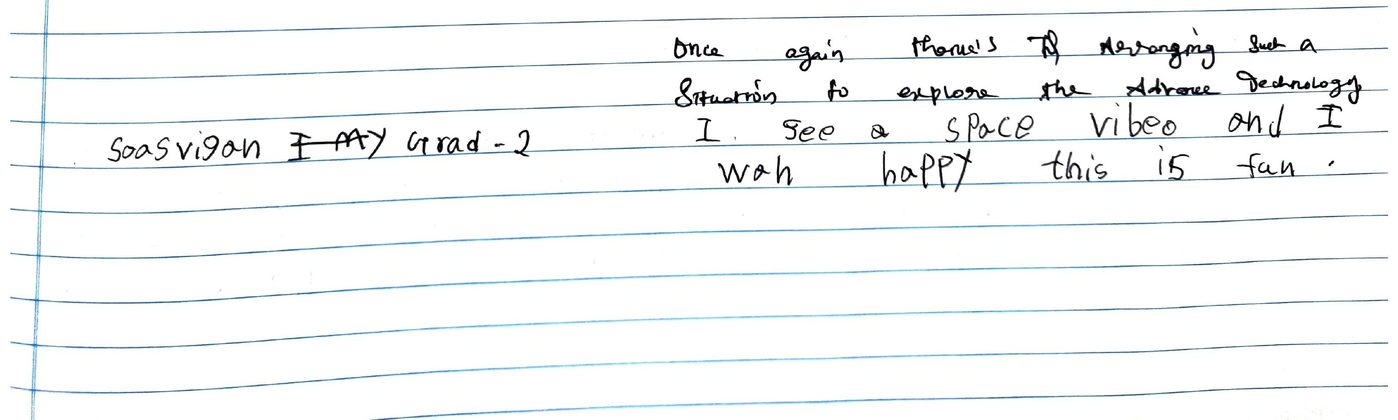 Once again thanks for Arranging Such a
Situation to explore the Advance Technology
Soasvigan I MY Grad-2
I. See a space vibeo and I
wah happy this is fan.